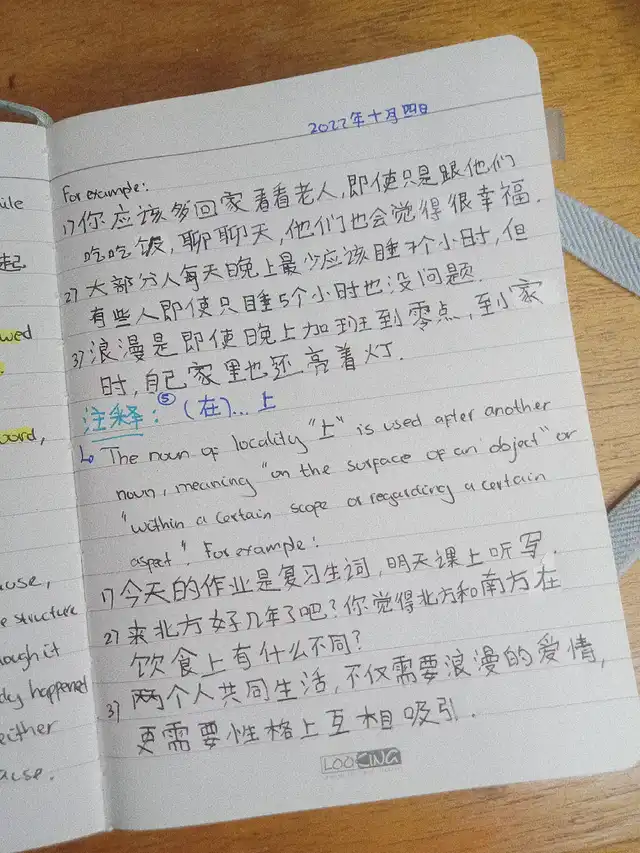 ile
起
wed
ord,
use,
e structure
ough it
dy happened
either
ause.
2022年十月四日
For example:
1) 你应该多回家看看老人,即使只是跟他们
吃吃饭,聊聊天,他们也会觉得很幸福.
2) 大部分人每天晚上最少应该睡7个小时,但
有些人即使只睡5个小时也没问题.
3) 浪漫是即使晚上加班到零点,到小家
时,自己家里也还亮着灯.
注释: ⑤ (在)... 上
↳ The noun of locality "上" is used after another
noun, meaning "on the surface of an object" or
"within a certain scope or regarding a certain
aspect". For example:
1) 今天的作业是复习生词,明天课上听写.
2) 来北方好几年了吧?你觉得北方和南方在
饮食上有什么不同?
3) 两个人共同生活,不仅需要浪漫的爱情,
更需要性格上互相吸引.
LOOKING